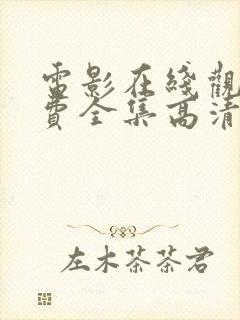 電影在綫觀
費全集高清
左木茶茶君